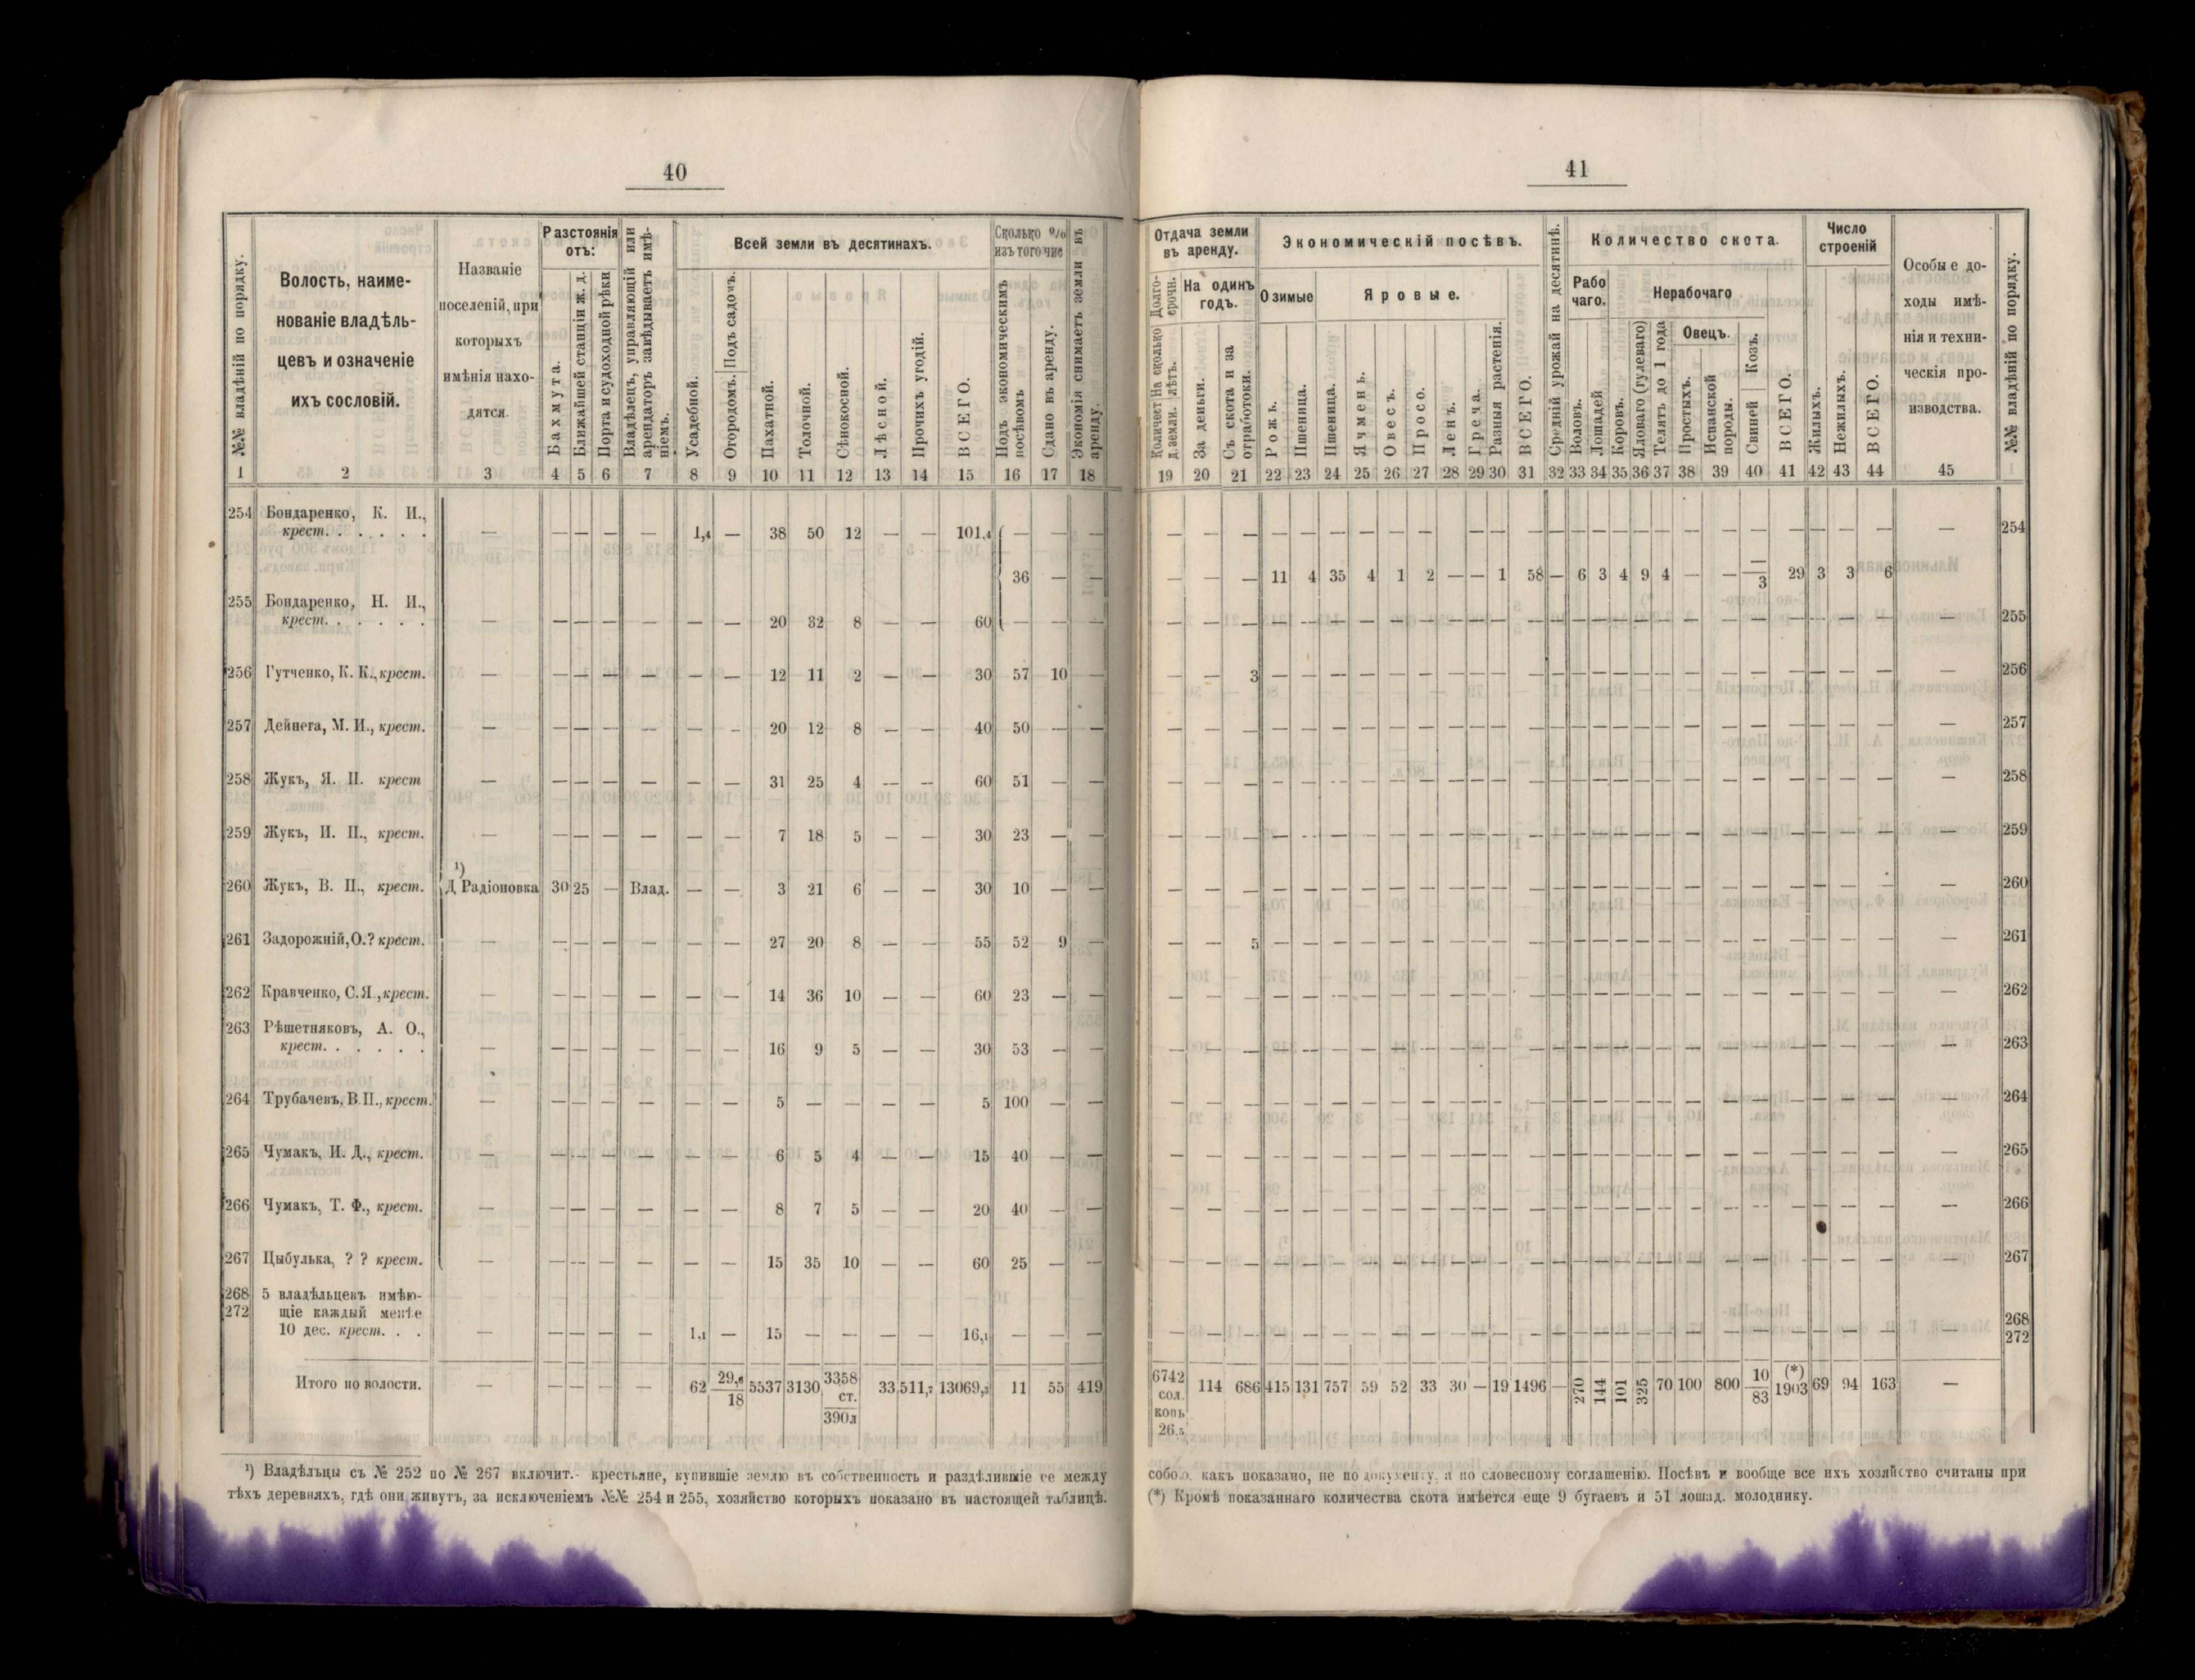 40
№№ владѣній по порядку.
Волость, наиме-
нованіе владѣль-
цевъ и означеніе
ихъ сословій.
Названіе
поселеній, при
которыхъ
имѣнія нахо-
дятся.
Разстоянія
отъ:
Бахмута.
Ближайшей станціи ж. д.
Порта и судоходной рѣки
Владѣлецъ, управляющій или
арендаторъ завѣдываетъ имѣ-
ніемъ.
Всей земли въ десятинахъ.
Усадебной.
Огородомъ. Подъ садомъ.
Пахатной.
Толочной.
Сѣнокосной.
Лѣсной.
Прочихъ угодій.
ВСЕГО.
Сколько %
изъ того чис
Подъ экономическимъ
посѣвомъ
Сдано въ аренду.
Экономія снимаетъ земли въ
аренду.
1 2 3 4 5 6 7 8 9 10 11 12 13 14 15 16 17 18
254 Бондаренко, К. И.,
крест. . . . . . — — — — — 1,4 — 38 50 12 — — 101,4 — — —
36 — —
255 Бондаренко, Н. И.,
крест. . . . . . — — — — — — — 20 32 8 — — 60 — — —
256 Гутченко, К. К., крест. — — — — — — — 12 11 2 — — 30 57 10 —
257 Дейнега, М. И., крест. — — — — — — — 20 12 8 — — 40 50 — —
258 Жукъ, Я. П. крест — — — — — — — 31 25 4 — — 60 51 — —
259 Жукъ, И. П., крест. — — — — — — — 7 18 5 — — 30 23 — —
¹)
260 Жукъ, В. П., крест. Д Радіоновка 30 25 — Влад. — — 3 21 6 — — 30 10 — —
261 Задорожній, О.? крест. — — — — — — — 27 20 8 — — 55 52 9 —
262 Кравченко, С. Я., крест. — — — — — — — 14 36 10 — — 60 23 — —
263 Рѣшетняковъ, А. О.,
крест. . . . . . — — — — — — — 16 9 5 — — 30 53 — —
264 Трубачевъ, В. П., крест. — — — — — — — 5 — — — — 5 100 — —
265 Чумакъ, И. Д., крест. — — — — — — — 6 5 4 — — 15 40 — —
266 Чумакъ, Т. Ф., крест. — — — — — — — 8 7 5 — — 20 40 — —
267 Цыбулька, ? ? крест. — — — — — — — 15 35 10 — — 60 25 — —
268 5 владѣльцевъ имѣю-
272 щіе каждый менѣе
10 дес. крест. . . — — — — — 1,1 — 15 — — — — 16,1 — — —
Итого по волости. — — — — — 62 29,8/18 5537 3130 3358 ст./390л 33 511,7 13069,5 11 55 419
¹) Владѣльцы съ № 252 по № 267 включит.- крестьяне, купившіе землю въ собственность и раздѣлившіе ее между
тѣхъ деревняхъ, гдѣ они живутъ, за исключеніемъ №№ 254 и 255, хозяйство которыхъ показано въ настоящей таблицѣ.
41
Отдача земли
въ аренду.
Долго-
срочн.
На одинъ
годъ.
Количест
д. земли.
На сколько
лѣтъ.
За деньги.
Съ скота и за
отработоки.
Экономическій посѣвъ.
Озимые
Яровые.
Рожь.
Пшеница.
Пшеница.
Ячмень.
Овесъ.
Просо.
Ленъ.
Греча.
Разныя растенія.
ВСЕГО.
Средній урожай на десятинѣ.
Количество скота.
Рабо
чаго.
Нерабочаго
Воловъ.
Лошадей
Коровъ.
Яловаго (гулеваго)
Телятъ до 1 года
Овецъ.
Простыхъ.
Испанской
породы.
Свиней Козъ.
ВСЕГО.
Число
строеній
Жилыхъ.
Нежилыхъ.
ВСЕГО.
Особые до-
ходы имѣ-
нія и техни-
ческія про-
изводства.
№№ владѣній по порядку.
19 20 21 22 23 24 25 26 27 28 29 30 31 32 33 34 35 36 37 38 39 40 41 42 43 44 45 1
— — — — — — — — — — — — — — — — — — — — — — — — — — — 254
— — — 11 4 35 4 1 2 — — 1 58 — 6 3 4 9 4 — — —/3 29 3 3 6
— — — — — — — — — — — — — — — — — — — — — — — — — — — 255
— — 3 — — — — — — — — — — — — — — — — — — — — — — — — 256
— — — — — — — — — — — — — — — — — — — — — — — — — — — 257
— — — — — — — — — — — — — — — — — — — — — — — — — — — 258
— — — — — — — — — — — — — — — — — — — — — — — — — — — 259
— — — — — — — — — — — — — — — — — — — — — — — — — — — 260
— — 5 — — — — — — — — — — — — — — — — — — — — — — — — 261
— — — — — — — — — — — — — — — — — — — — — — — — — — — 262
— — — — — — — — — — — — — — — — — — — — — — — — — — — 263
— — — — — — — — — — — — — — — — — — — — — — — — — — — 264
— — — — — — — — — — — — — — — — — — — — — — — — — — — 265
— — — — — — — — — — — — — — — — — — — — — — — — — — — 266
— — — — — — — — — — — — — — — — — — — — — — — — — — — 267
— — — — — — — — — — — — — — — — — — — — — — — — — — — 268
272
6742 114 686 415 131 757 59 52 33 30 — 19 1496 — 270 144 101 325 70 100 800 10/83 (*) 1903 69 94 163 —
сол.
копь
26.
собою, какъ показано, не по документу, а по словесному соглашенію. Посѣвъ и вообще все ихъ хозяйство считаны при
(*) Кромѣ показаннаго количества скота имѣется еще 9 бугаевъ и 51 лошад. молоднику.